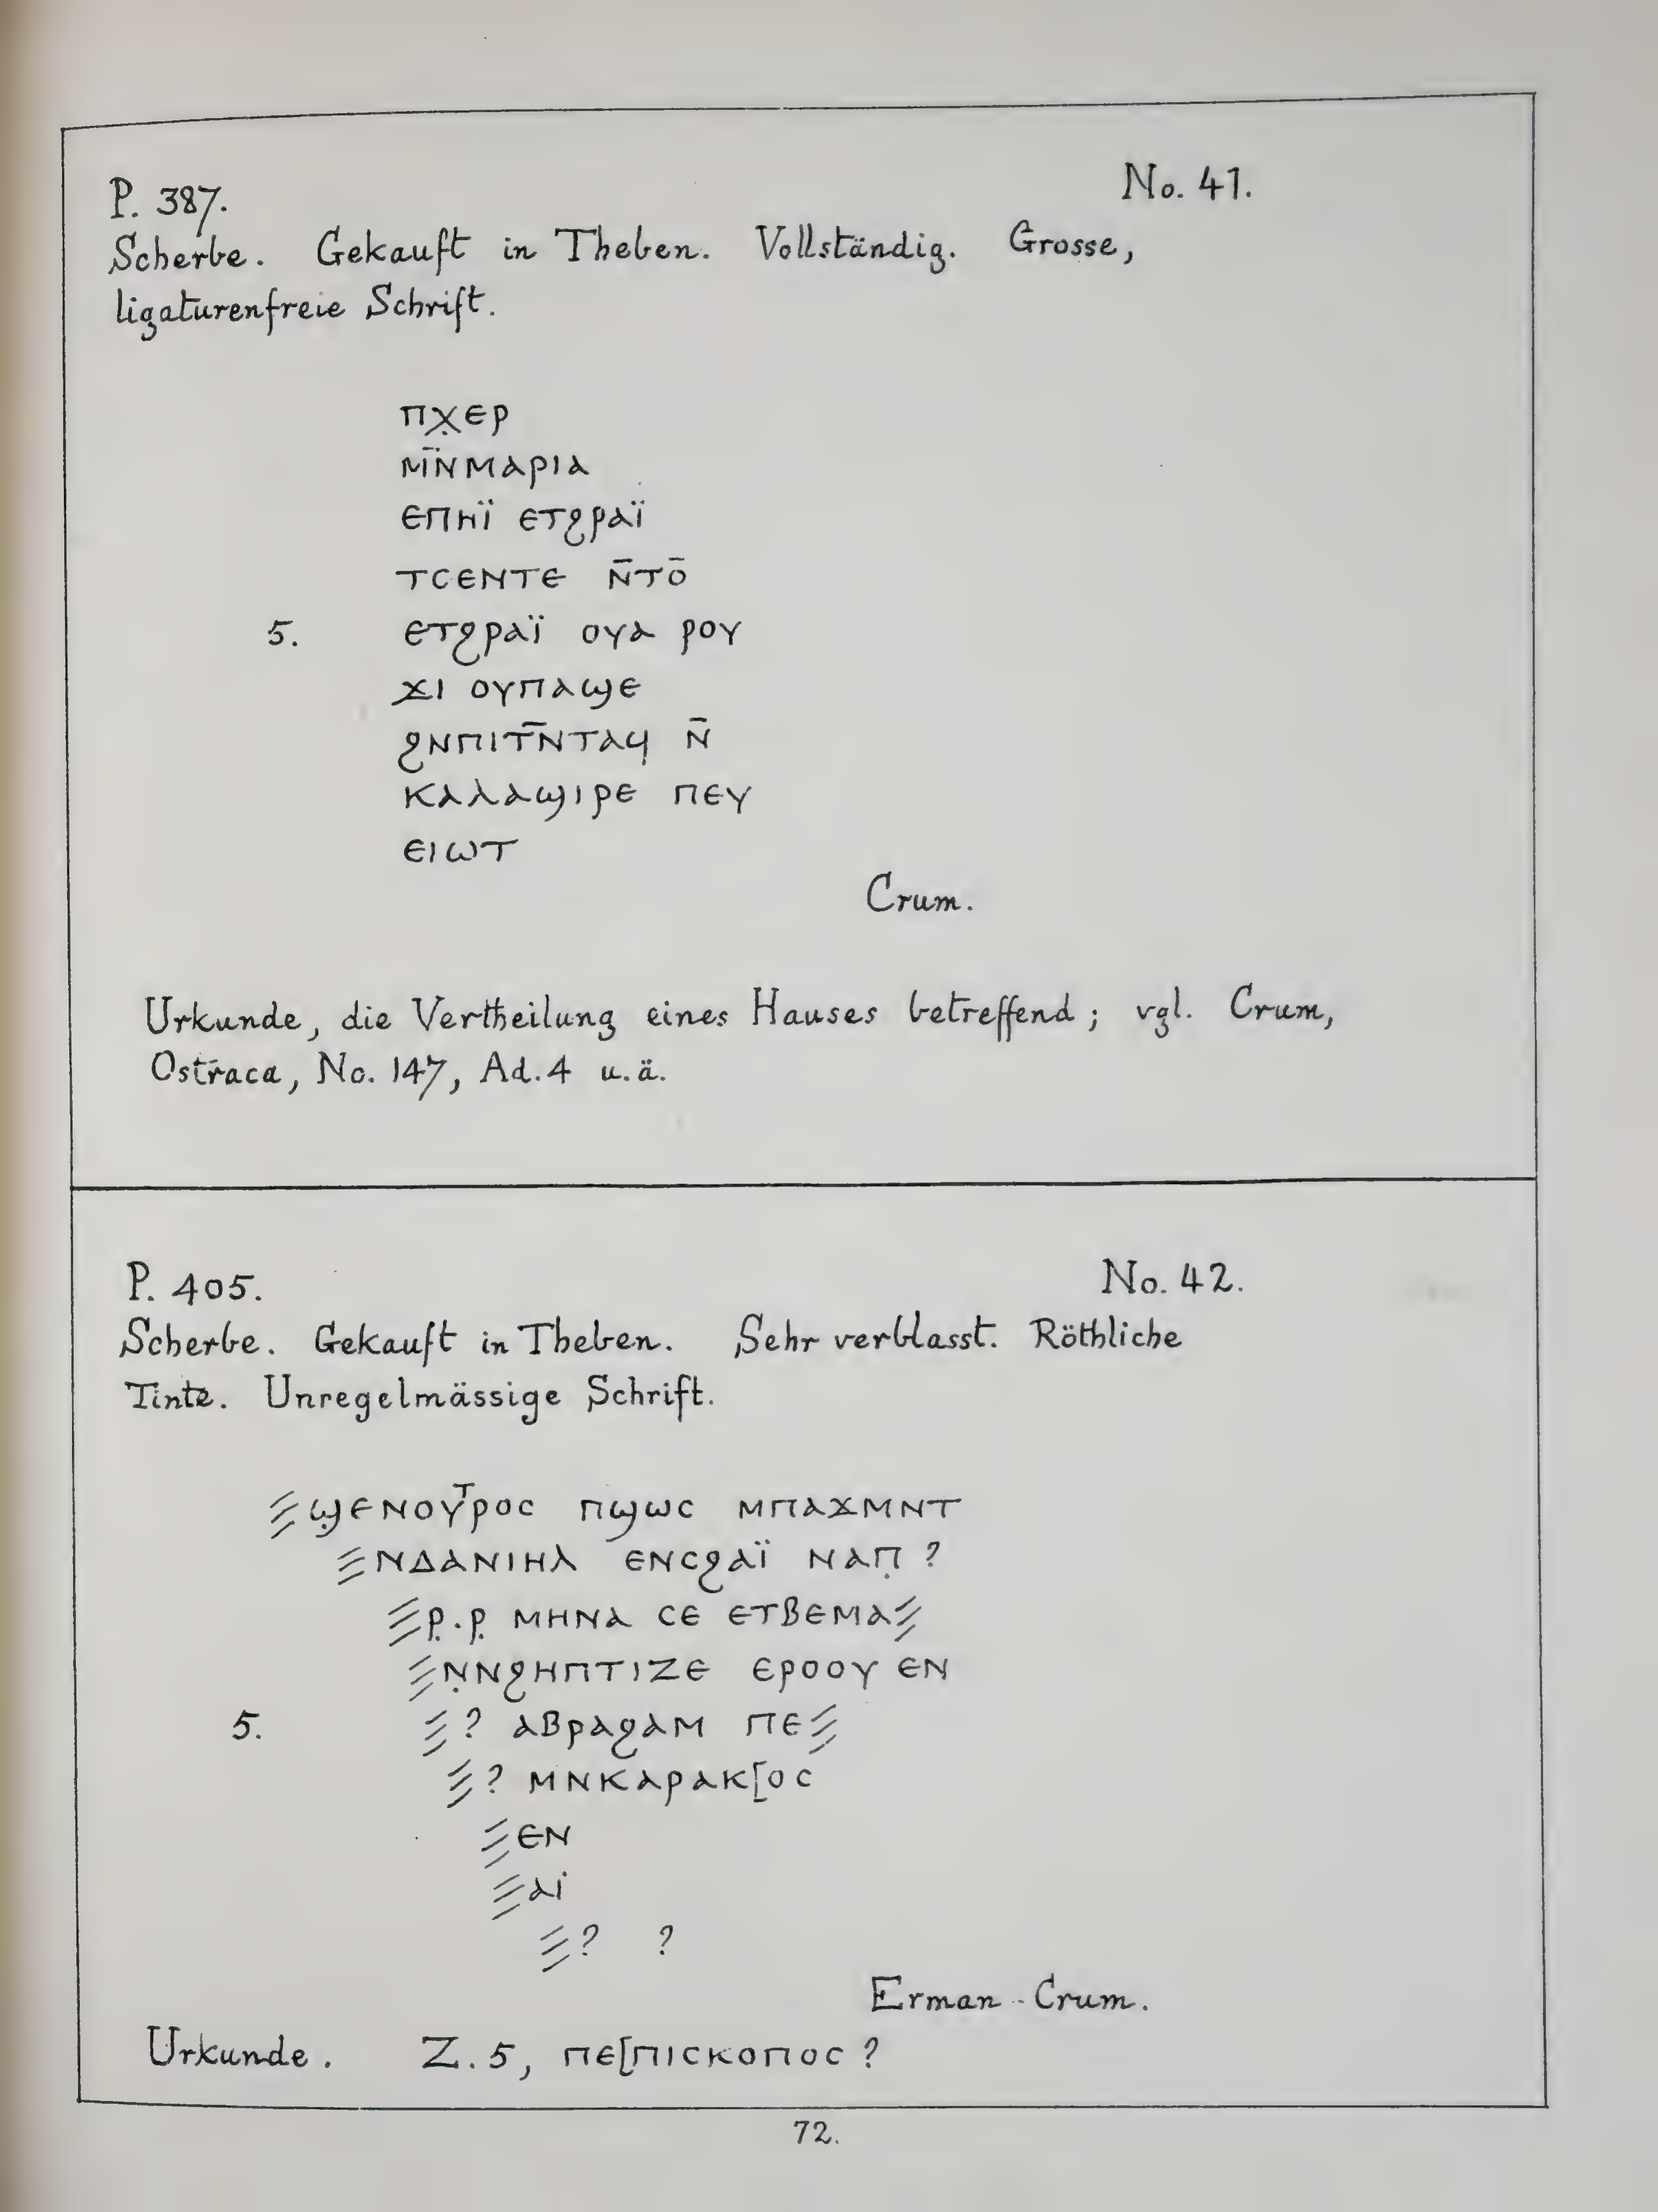 P. 387.
No. 41.
Scherbe. Gekauft in Theben. Vollständig. Grosse,
ligaturenfreie Schrift.
ⲡϫ̣ⲉⲣ
ⲙⲛ̄ⲙⲁⲣⲓⲁ
ⲉⲡⲏⲓ̈ ⲉⲧϩⲣⲁⲓ̈
ⲧⲥⲉⲛⲧⲉ ⲛ̄ⲧⲟ̄
5. ⲉⲧϩⲣⲁⲓ̈ ⲟⲩⲁ ⲣⲟⲩ
ϫⲓ ⲟⲩⲡⲁϣⲉ
ϩⲛⲡⲓⲧⲛ̄ⲧⲁϥ ⲛ̄
ⲕⲁⲗⲁϣⲓⲣⲉ ⲡⲉⲩ
ⲉⲓⲱⲧ
Crum.
Urkunde, die Vertheilung eines Hauses betreffend; vgl. Crum,
Ostraca, No. 147, Ad. 4 u. ä.
P. 405.
No. 42.
Scherbe. Gekauft in Theben. Sehr verblasst. Röthliche
Tinte. Unregelmässige Schrift.
⫽ϣ̣ⲉⲛⲟⲩⲧⲣⲟⲥ ⲡϣⲱⲥ ⲙⲡⲁϫⲙⲛⲧ
⫽ⲛⲇⲁⲛⲓⲏⲗ ⲉⲛⲥϩⲁⲓ̈ ⲛⲁⲡ̣ ?
⫽ⲣ̣.ⲣ̣ ⲙⲏⲛⲁ ⲥⲉ ⲉⲧⲃⲉⲙⲁ⫽
⫽ⲛ̣ⲛϩⲏⲡⲧⲓⲍⲉ ⲉⲣⲟⲟⲩ ⲉⲛ
5. ⫽ ? ⲁⲃⲣⲁϩⲁⲙ ⲡⲉ⫽
⫽ ? ⲙⲛⲕⲁⲣⲁⲕ[ⲟⲥ
⫽ⲉⲛ
⫽ⲁⲓ
⫽? ?
Erman-Crum.
Urkunde. Z. 5, ⲡⲉ[ⲡⲓⲥⲕⲟⲡⲟⲥ ?
72.